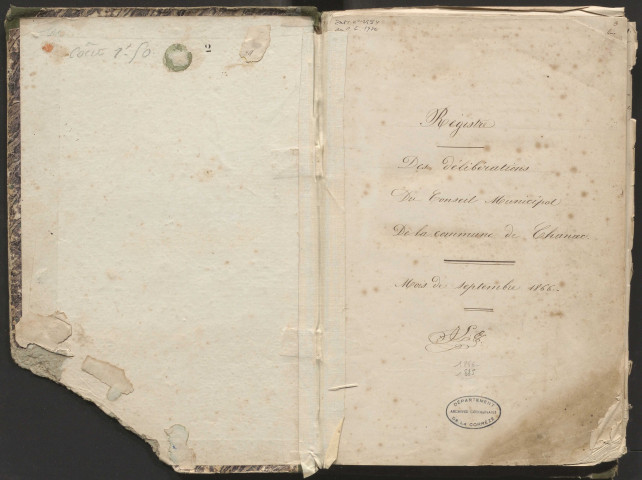 coûte 1f 50
2
2
Registre
Des délibérations
Du Conseil Municipal
De la commune de Chanac.
Mois de septembre 1866.
DÉPARTEMENT
ARCHIVES
DE LA CORRÈZE